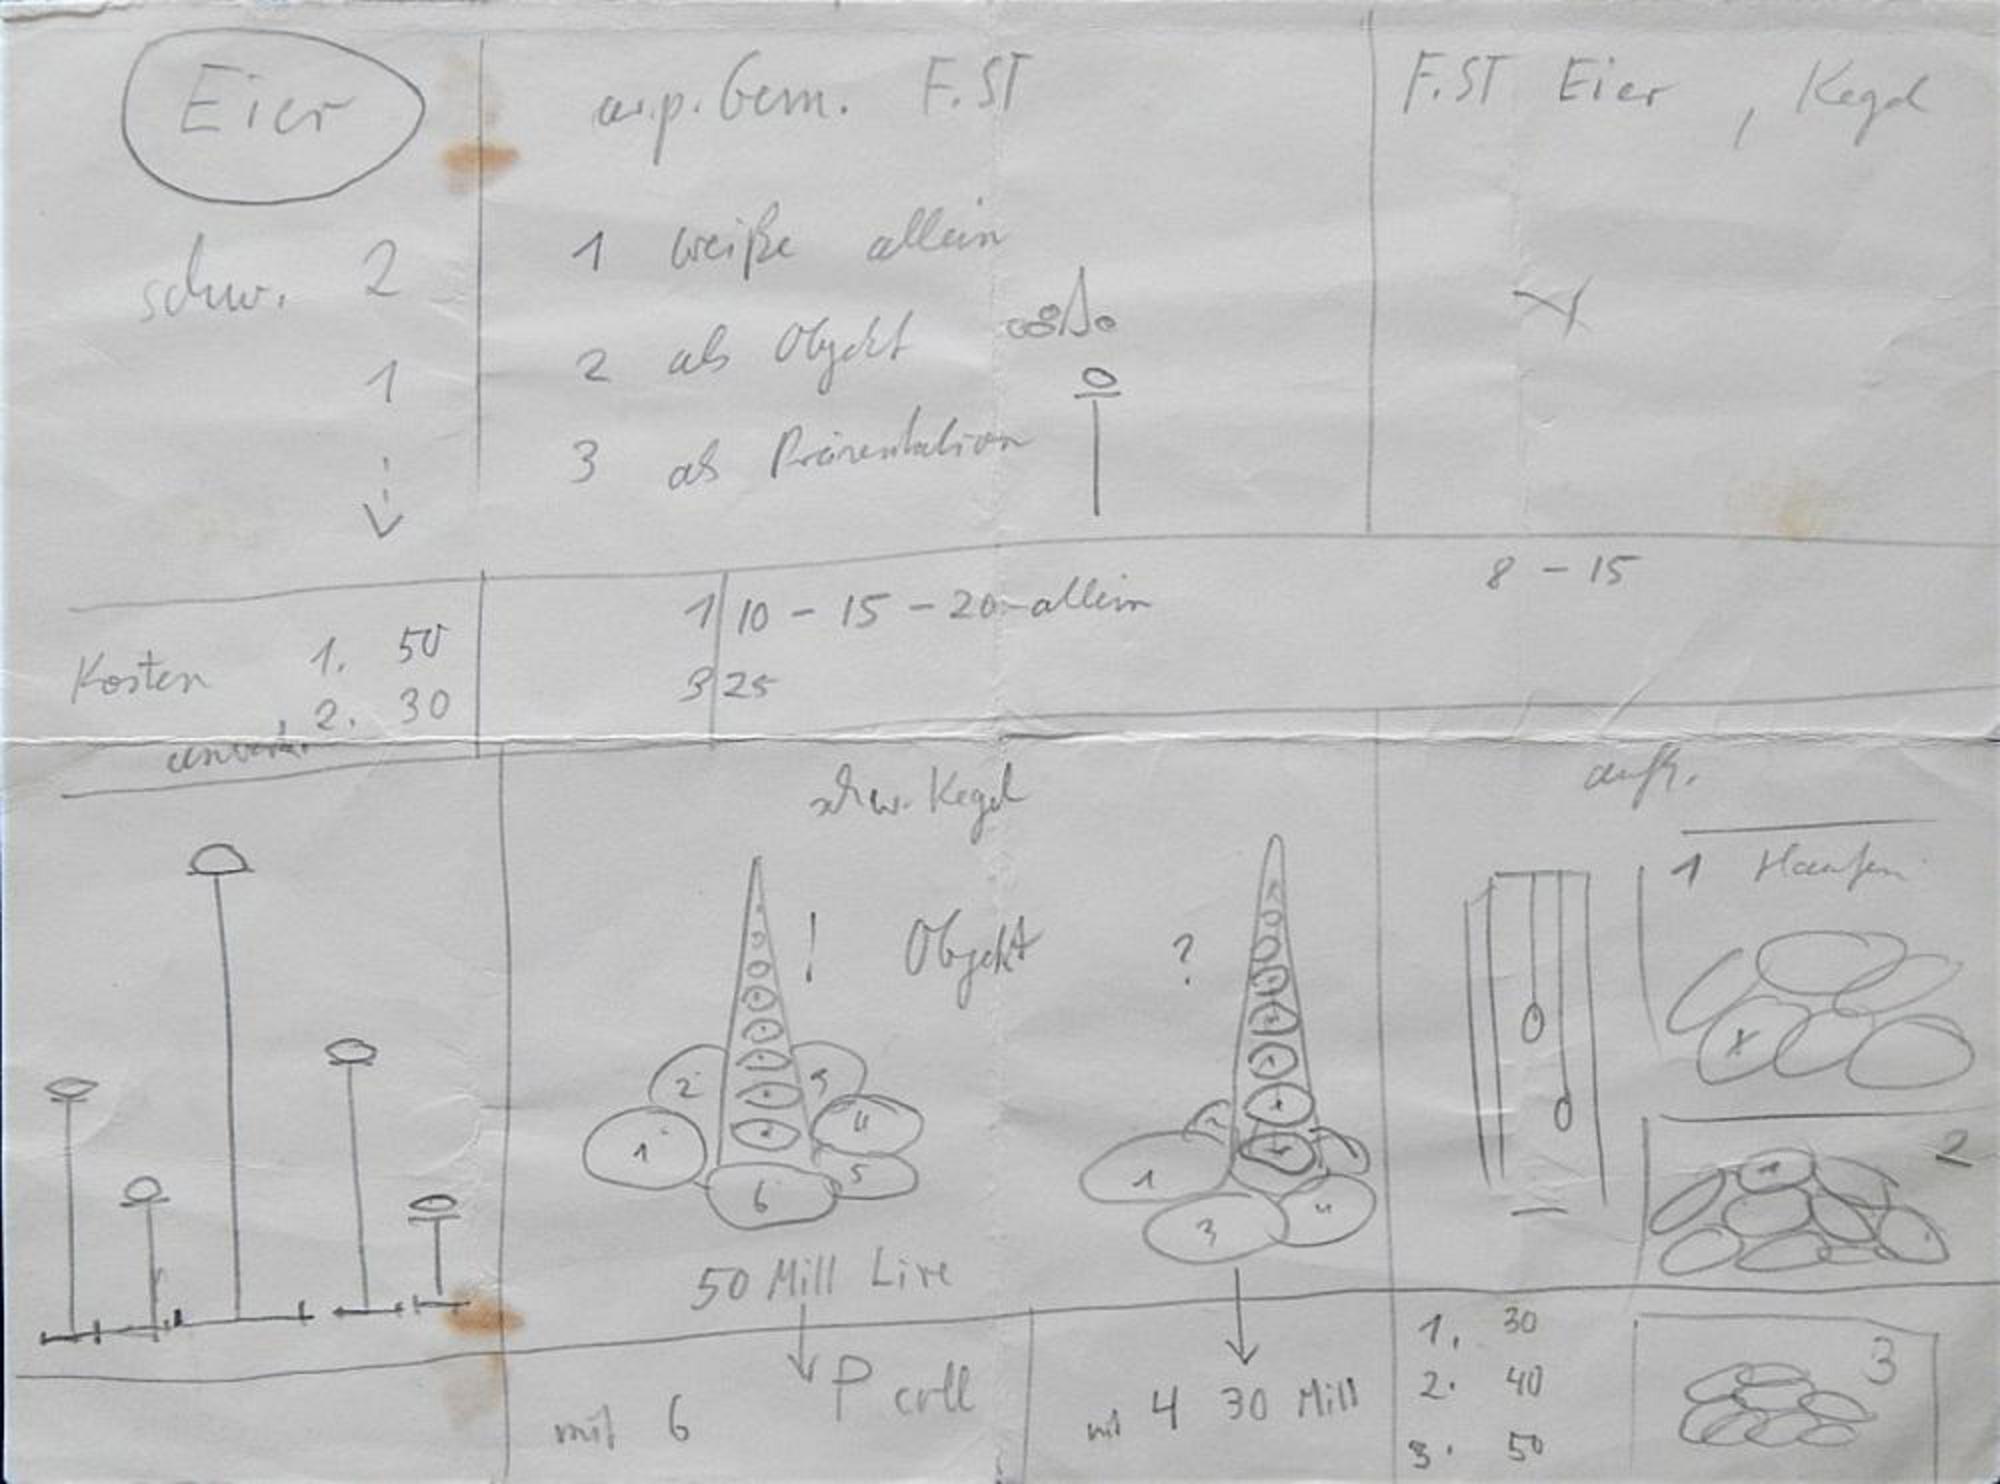 Eier
schw. 2
1
Gem. F.ST
1 weiße allein
2 als Objekt
3 als Präsentation
F.ST Eier, Kegel
Kosten 1. 50
2. 30
1 10 - 15 - 20 - allein
3 25
8 - 15
schw. Kegel
! Objekt ?
2
1
6
5
4
50 Mill Lire
mit 6
P coll
1
3
4
mit 4 30 Mill
1 Haufen
x
2
3
1. 30
2. 40
3. 50